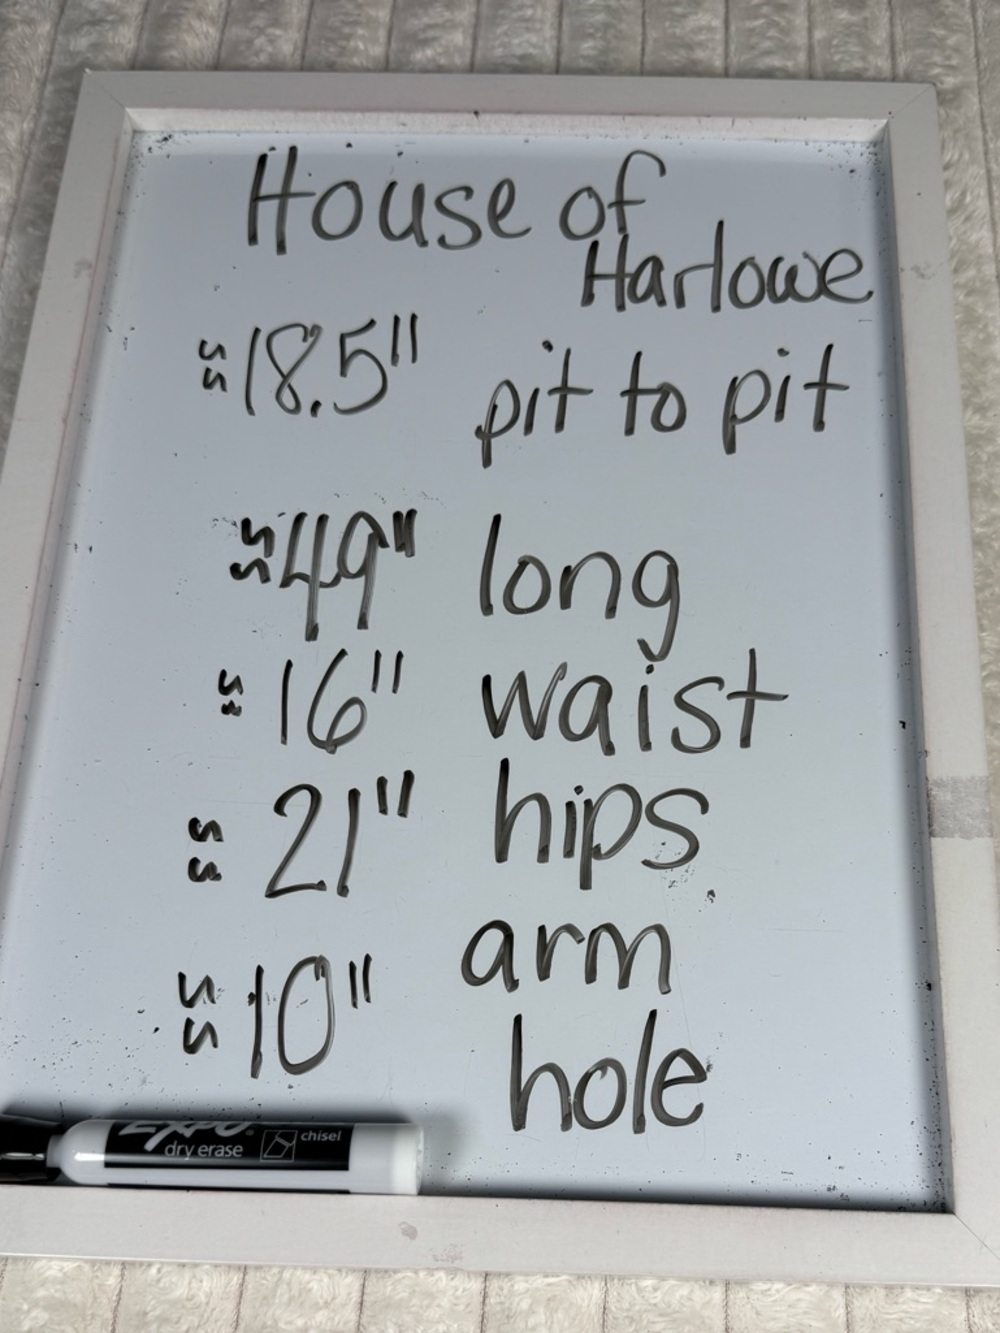 House of
Harlowe
≈18.5" pit to pit
≈49" long
≈ 16" waist
≈ 21" hips
≈10" arm
hole
EXPO®
dry erase chisel